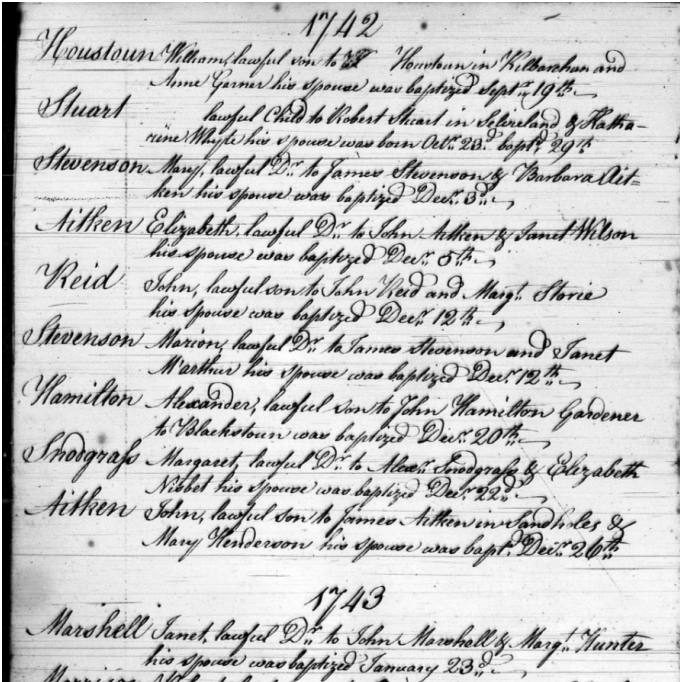 1742
Houstoun William, lawful son to Houstoun in Kilbarchan and
Anne Garner his spouse was baptized Septr. 19th.
Stuart lawful Child to Robert Stuart in Selvieland & Katha-
rine Whyte his spouse was born Octr. 23d. bapt. 29th
Stevenson Mary, lawful Dr. to James Stevenson & Barbara Ait-
ken his spouse was baptized Decr. 3d.
Aitken Elizabeth, lawful Dr. to John Aitken & Janet Wilson
his spouse was baptized Decr. 5th.
Reid John, lawful son to John Reid and Margt. Storie
his spouse was baptized Decr. 12th.
Stevenson Marion, lawful Dr. to James Stevenson and Janet
M'arthur his spouse was baptized Decr. 12th.
Hamilton Alexander, lawful son to John Hamilton Gardener
to Blackstoun was baptized Decr. 20th.
Snodgrass Margaret, lawful Dr. to Alexr. Snodgrass & Elizabeth
Nisbet his spouse was baptized Decr. 22d.
Aitken John, lawful son to James Aitken in Sandholes &
Mary Henderson his spouse was bapt. Decr. 26th
1743
Marshell Janet, lawful Dr. to John Marshell & Margt. Hunter
his spouse was baptized January 23d.